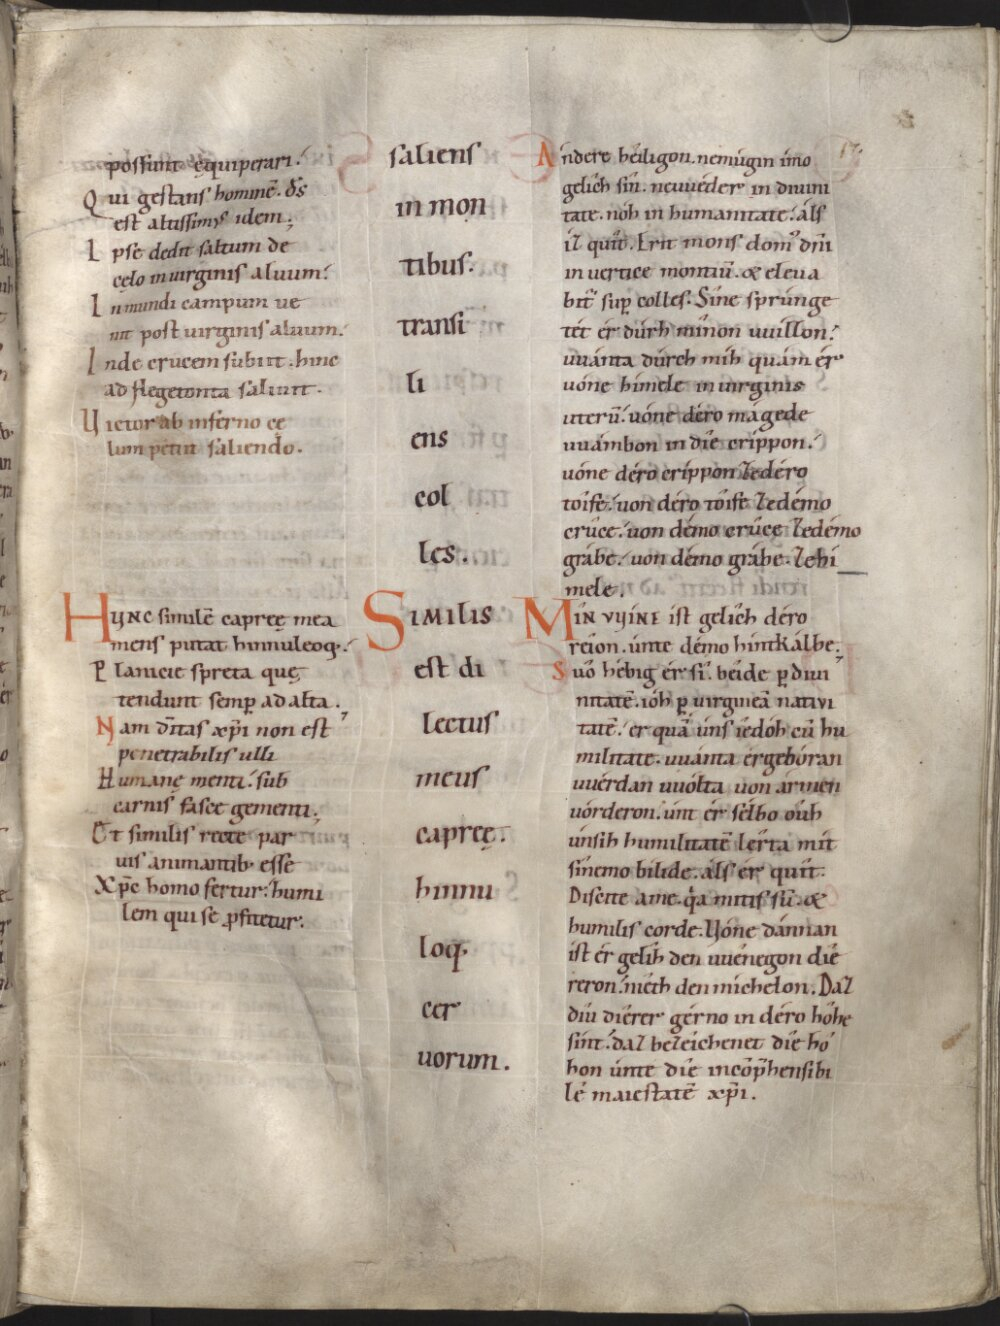 possunt ęquiperari.
Qui gestans hominē. d̄s
est altissimꝰ idem;
Ipse dedit saltum de
cęlo in uirginis aluum.
In mundi campum ue
nit post uirginis aluum.
Inde crucem subiit. hinc
ad flegetonta saliuit.
Uictor ab inferno cę
lum petiit saliendo.
HUNC similē capreę mea
mens putat hinnuleoq;.
Planicie spreta quę
tendunt semꝑ ad alta.
Nam d̄itas xp̄i non est
penetrabilis ulli
Humanę menti. sub
carnis fasce gementi;
Et similis recte par
uis animantib; esse
Xp̄c homo fertur. humi
lem qui se ꝓfitetur.
saliens
in mon
tibus.
transi
li
ens
col
les.
SIMILIS
est di
lectus
meus
capreę.
hinnu
loq;
cer
uorum.
17.
Ándere héiligon. nemúgin imo
gelích sîn. neuuéder in diuini
tate. nóh in humanitate. áls
íz quît. Erit mons domꝰ dn̄i
in uertice montiū. & eleua
bit᷑ suꝑ colles. Sîne sprúnge
tét ér dúrh mînon uuíllon.
uuánta dúrch míh quám ér
uóne hímele in uirginis
uterū. uóne déro mágede
uuámbon in díe crippon.
uóne déro críppon ze déro
tóife. uon déro tóife ze démo
crûce. uon démo crûce ze démo
grábe. uon démo grábe. ze hi
mele.
MIN VUINE ist gelích déro
réion. únte démo hintkálbe.
Suô hébig ér sî. béide ꝑ diui
nitatē. ióh ꝑ uirgineā natiui
tatē. ér quā úns iedóh cū hu
militate. uuánta ér gebóran
uuérdan uuólta uon ármen
uórderon. únt ér sélbo óuh
únsih humilitatē lérta mit
sînemo bílide. áls ér quît.
Discite a me. q̄a mitis sū. &
humilis corde. Uóne dánnan
ist ér gelíh den uuénegon díe
reron. níeth den míchelon. Daz
díu díerer gérno in déro hôhe
sínt. daz bezéichenet díe hó
hon únte díe incōp̄hensibi
lē maiestatē xp̄i.